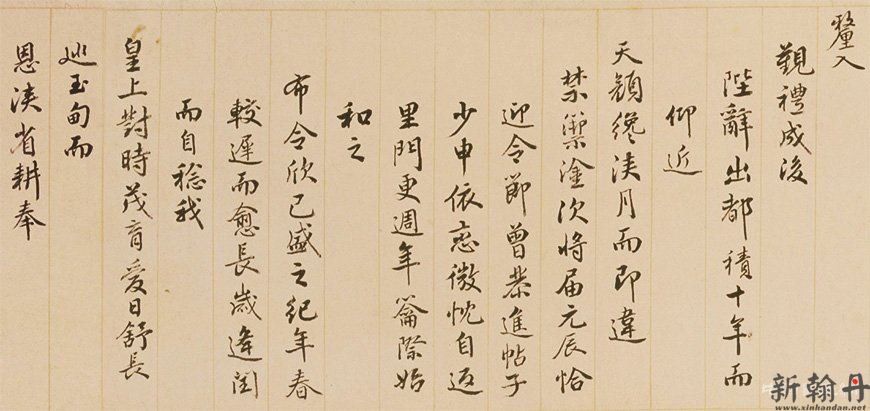 釐入
覲禮成後
陛辭出都積十年而
仰近
天顏纔浹月而即違
禁籞塗次將届元辰恰
迎令節曾恭進帖子
少申依戀微忱自返
里門更週年籥際始
和之
布令欣已盛之紀年春
較遲而愈長歲逢閏
而自稔我
皇上對時茂育愛日舒長
巡玉甸而
恩浹省耕奉
新翰丹
www.xinhandan.net